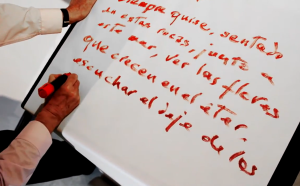 siempre quise, sentado
en estas rocas, junto a
este mar, ver las flores
que crecen en el éter
escuchar el deje de los